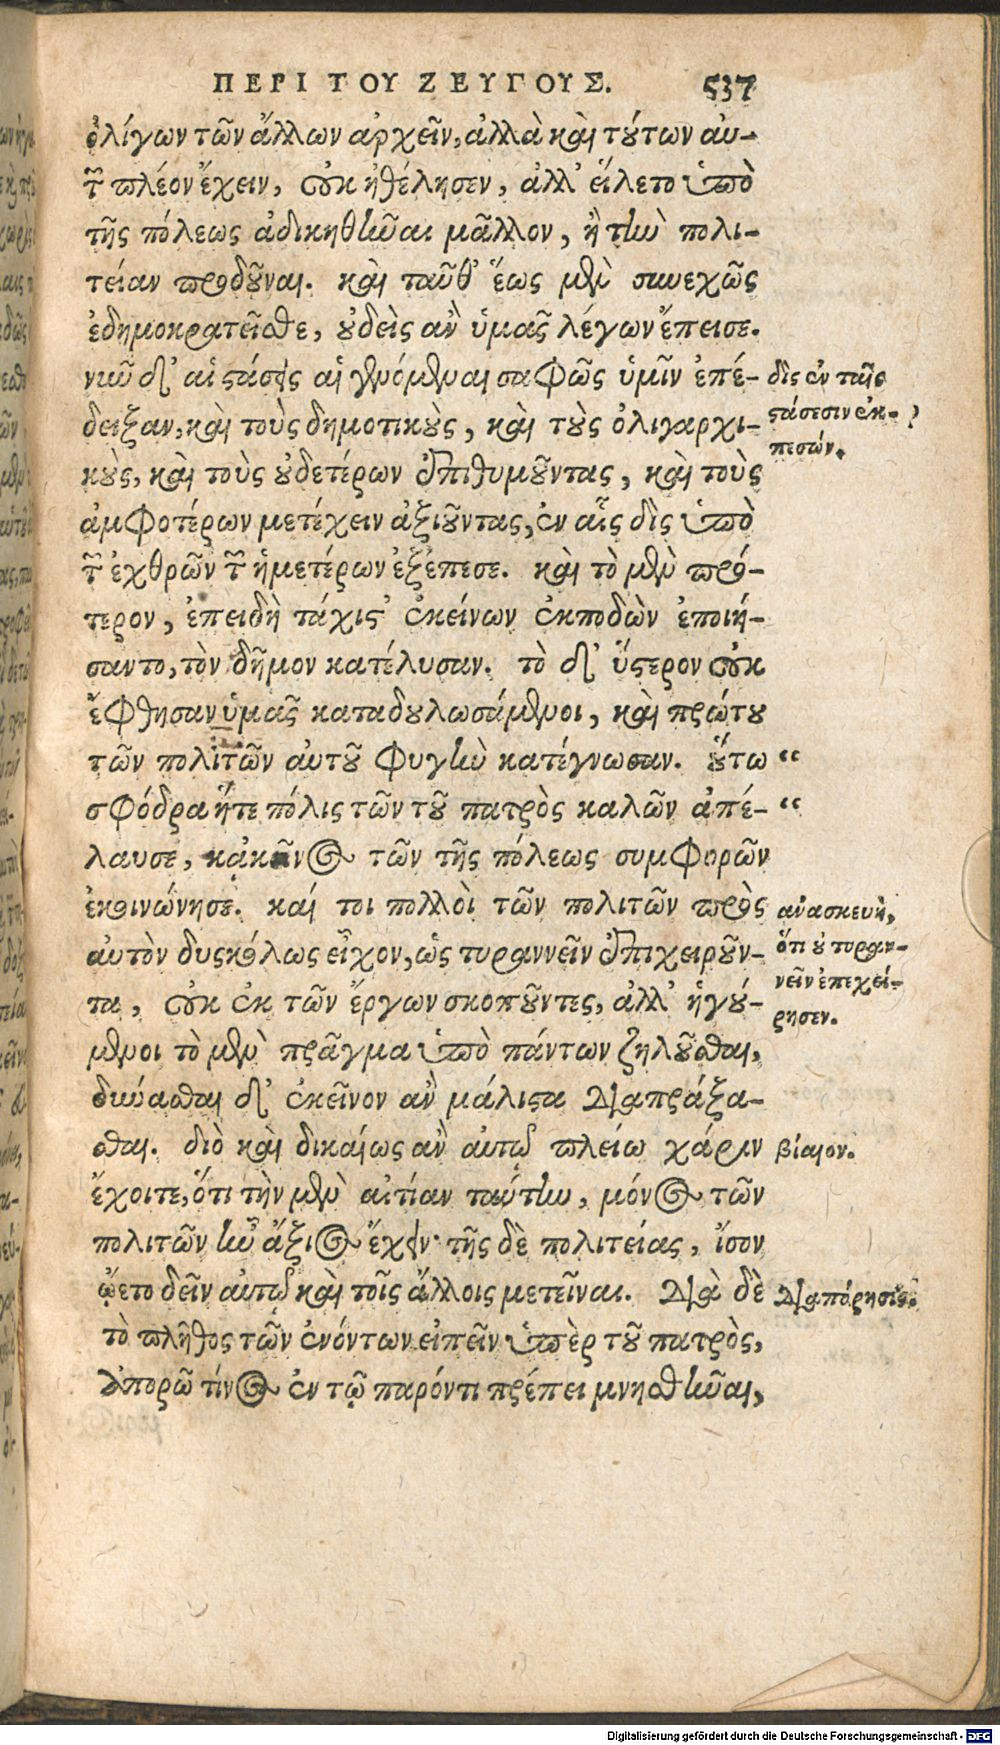 ΠΕΡΙ ΤΟΥ ΖΕΥΓΟΥΣ. 537
ὀλίγων τῶν ἄλλων ἀρχεῖν, ἀλλὰ καὶ τούτων αὐ-
τῶν πλέον ἔχειν, οὐκ ἠθέλησεν, ἀλλ' εἵλετο ὑπὸ
τῆς πόλεως ἀδικηθῆναι μᾶλλον, ἢ τὴν πολι-
τείαν προδοῦναι. καὶ ταῦθ' ἕως μὲν συνεχῶς
ἐδημοκρατεῖσθε, οὐδεὶς ἂν ὑμᾶς λέγων ἔπεισε.
νῦν δ' αἱ στάσεις αἱ γενόμεναι σαφῶς ὑμῖν ἐπέ-
δειξαν, καὶ τοὺς δημοτικοὺς, καὶ τοὺς ὀλιγαρχι-
κοὺς, καὶ τοὺς οὐδετέρων ἐπιθυμοῦντας, καὶ τοὺς
ἀμφοτέρων μετέχειν ἀξιοῦντας, ἐν αἷς δὶς ὑπὸ
τῶν ἐχθρῶν τῶν ἡμετέρων ἐξέπεσε. καὶ τὸ μὲν πρό-
τερον, ἐπειδὴ τάχιστ' ἐκείνων ἐκποδὼν ἐποιή-
σαντο, τὸν δῆμον κατέλυσαν. τὸ δ' ὕστερον οὐκ
ἔφθησαν ὑμᾶς καταδουλωσάμενοι, καὶ πρώτου
τῶν πολιτῶν αὐτοῦ φυγὴν κατέγνωσαν. οὕτω “
σφόδρα ἥτε πόλις τῶν τοῦ πατρὸς καλῶν ἀπέ- “
λαυσε, κἀκεῖνος τῶν τῆς πόλεως συμφορῶν
ἐκοινώνησε. καί τοι πολλοὶ τῶν πολιτῶν πρὸς
αὐτὸν δυσκόλως εἶχον, ὡς τυραννεῖν ἐπιχειροῦν-
τα, οὐκ ἐκ τῶν ἔργων σκοποῦντες, ἀλλ' ἡγού-
μενοι τὸ μὲν πρᾶγμα ὑπὸ πάντων ζηλοῦσθαι,
δύνασθαι δ' ἐκεῖνον ἂν μάλιστα διαπράξα-
σθαι. διὸ καὶ δικαίως ἂν αὐτῷ πλείω χάριν
ἔχοιτε, ὅτι τὴν μὲν αἰτίαν ταύτην, μόνος τῶν
πολιτῶν ἦν ἄξιος ἔχειν· τῆς δὲ πολιτείας, ἴσον
ᾤετο δεῖν αὐτῷ καὶ τοῖς ἄλλοις μετεῖναι. Διὰ δὲ
τὸ πλῆθος τῶν ἐνόντων εἰπεῖν ὑπὲρ τοῦ πατρὸς,
ἀπορῶ τίνος ἐν τῷ παρόντι πρέπει μνησθῆναι,
δὶς ἐν ταῖς
στάσεσιν ἐκ-
πεσών.
ἀνασκευὴ,
ὅτι οὐ τυραν-
νεῖν ἐπεχεί-
ρησεν.
βίαιον.
Διαπόρησις.
Digitalisierung gefördert durch die Deutsche Forschungsgemeinschaft - DFG